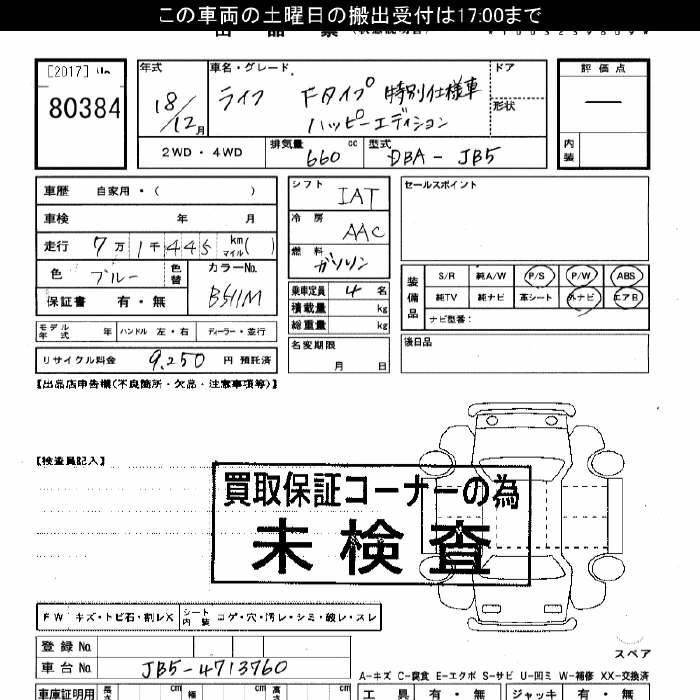 この車両の土曜日の搬出受付は17:00まで
[2017]
80384
年式
18/12月
車名・グレード
ライフ Fタイプ 特別仕様車
ハッピーエディション
ドア
形状
評価点
—
内装
2WD・4WD
排気量 660 cc
型式 DBA-JB5
車歴 自家用・( )
車検 年 月
走行 7万1千445 km マイル( )
色 ブルー 色替
カラーNo. B511M
保証書 有・無
モデル年式 年 ハンドル 左・右 ディーラー・並行
リサイクル料金 9,250 円 預託済
シフト IAT
冷房 AAC
燃料 ガソリン
乗車定員 4 名
積載量 kg
総重量 kg
名変期限
月 日
セールスポイント
装備品
S/R 純A/W P/S P/W ABS
純TV 純ナビ 革シート 外ナビ エアB
ナビ型番:
後日品
【出品店申告欄(不良箇所・欠品・注意事項等)】
【検査員記入】
買取保証コーナーの為
未検査
FW キズ・トビ石・割レX シート内装 コゲ・穴・汚レ・シミ・破レ・スレ
スペア
登録No.
車台No. JB5-4713760
A-キズ C-腐食 E-エクボ S-サビ U-凹ミ W-補修 XX-交換済
車庫証明用 長さ cm 幅 cm 高さ cm
工具 有・無 ジャッキ 有・無